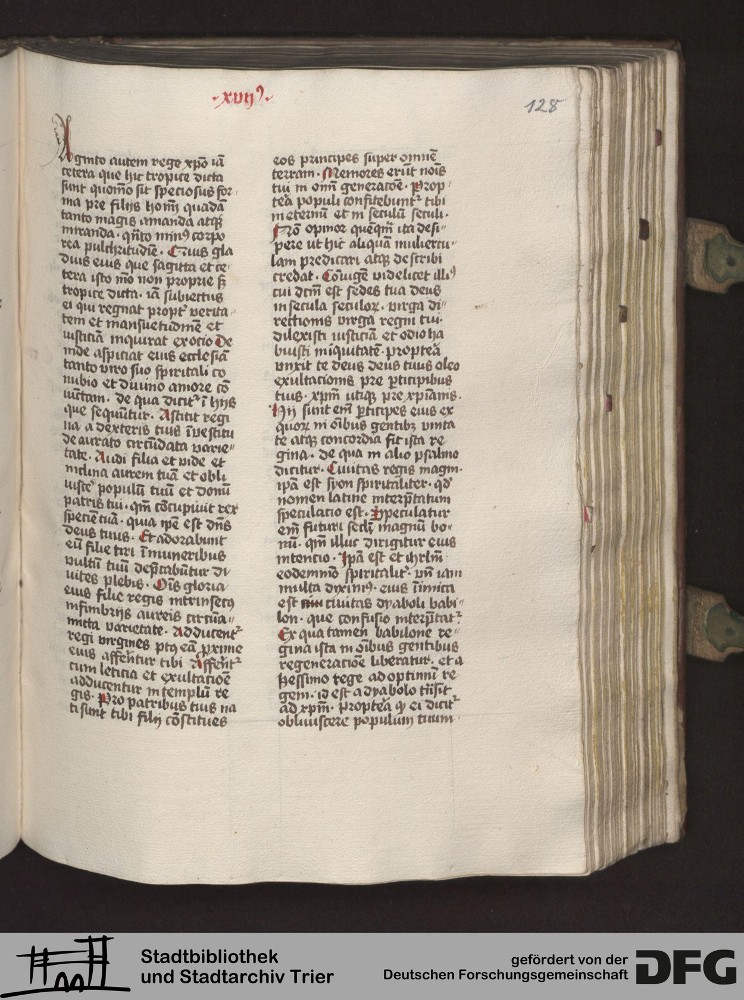 ·xvij⁹·
128
Agnito autem rege xp̄o iā
cetera que hic tropice dicta
sunt quom̄o sit speciosus for
ma pre filijs homī quadā
tanto magis amanda atq̄
miranda · q̄nto min⁹ corpo
rea pulchritudīe · Cuius gla
dius eius que sagitta et ce
tera isto mō non proprie s̄
tropice dicta · iā subiectus
ei qui regnat propt̄ verita
tem et mansuetudinē et
iusticiā inquirat ex ocio De
inde aspiciat eius ecclesiā
tanto viro suo spiritali co
nubio et diuino amore cō
iūctam · de qua dicit̄ ī hijs
que sequūtur · Astitit regi
na a dexteris tuis ī vestitu
de aurato circūdata varie
tate · Audi filia et vide et
inclina aurem tuā et obli
uisce populū tuū et domū
patris tui · qm̄ cōcupiuit rex
speciē tuā · quia ip̄e est dn̄s
deus tuus · Et adorabunt
eū filie tiri ī muneribus
vultū tuū dep̄cabūtur di
uites plebis · Oīs gloria
eius filie regis intrinsec⁹
in fimbrijs aureis circūa
micta varietate · Adducent̄
regi virgines p⁹ eā p̄xime
eius affen̄tur tibi Affent̄
cum leticia et exultacioē
adducentur in templū re
gis · Pro patribus tuis na
ti sunt tibi filij cōstitues
eos principes super omnē
terram · Memores erūt noīs
tui in om̄i generacōe · Prop
tēa populi confitebunt̄ tibi
in eternū et in seculū seculi ·
Nō opinor quēq̄m ita desi
pere ut hic aliquā muliercu
lam predicari atq̄ describi
credat · Cōiugē videlicet illi⁹
cui dcm̄ est sedes tua deus
in secula seculor̄ · virga di
rectionis virga regni tui ·
dilexisti iusticiā et odio ha
buisti iniquitatē · propteā
vnxit te deus deus tuus oleo
exultacionis pre p̄ticipibus
tuis · xp̄m utiq̄ pre xp̄ianis ·
Hij sunt em̄ p̄ticipes eius ex
quor̄ in oībus gentib⁹ vnita
te atq̄ concordia fit ista re
gina · de qua in alio psalmo
dicitur · Ciuitas regis magni ·
ip̄a est syon spiritaliter · qd̄
nomen latine interp̄tatum
speculacio est · Speculatur
em̄ futuri secl̄i magnū bo
nū · qm̄ illuc dirigitur eius
intencio · Ip̄a est et ihrl̄m
eodem mō spiritalit̄ · vn̄ iam
multa dixim⁹ · eius īimica
est ciuitas dyaboli babi
lon · que confusio interp̄tat̄
Ex qua tamen babilone re
gina ista in oībus gentibus
regeneracione liberatur · et a
pessimo rege ad optimū re
gem · id est a dyabolo tn̄sit
ad xp̄m · propteā q̄ ei dicit̄
obliuiscere populum tuum
Stadtbibliothek
und Stadtarchiv Trier
gefördert von der
Deutschen Forschungsgemeinschaft
DFG